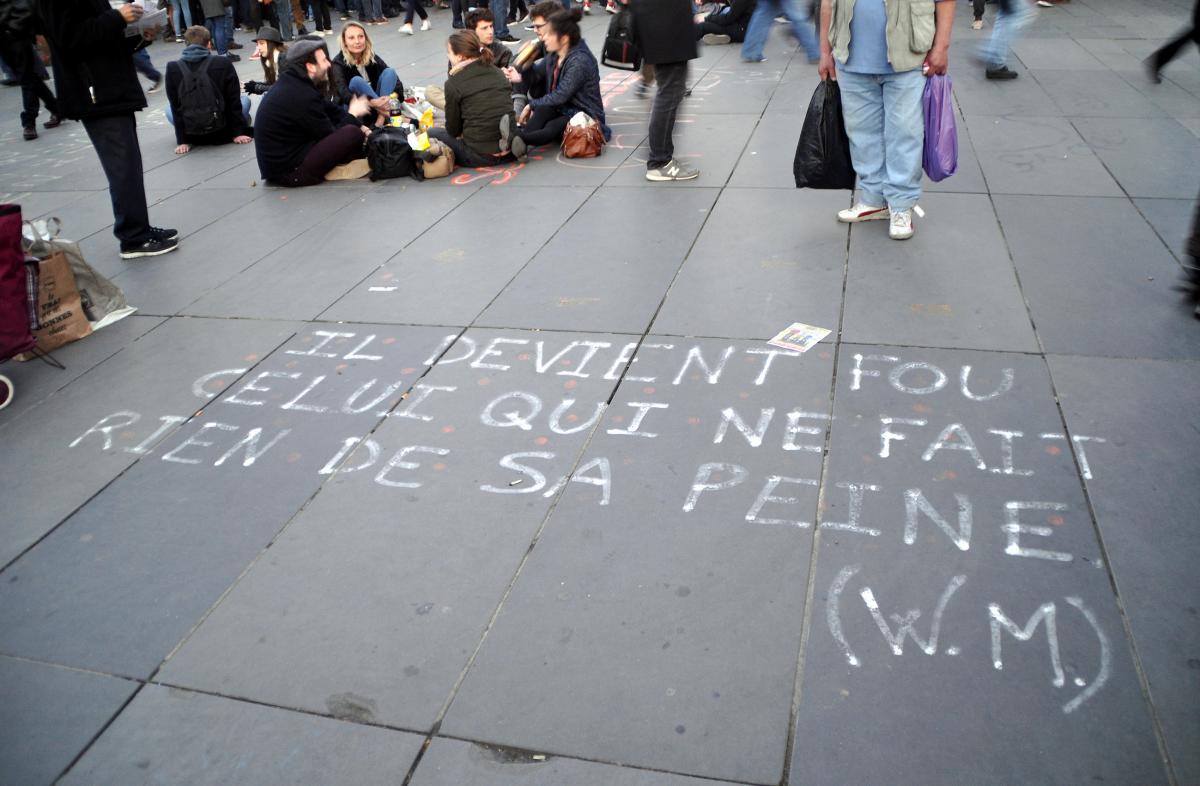 IL DEVIENT FOU
CELUI QUI NE FAIT
RIEN DE SA PEINE.
(W. M.)